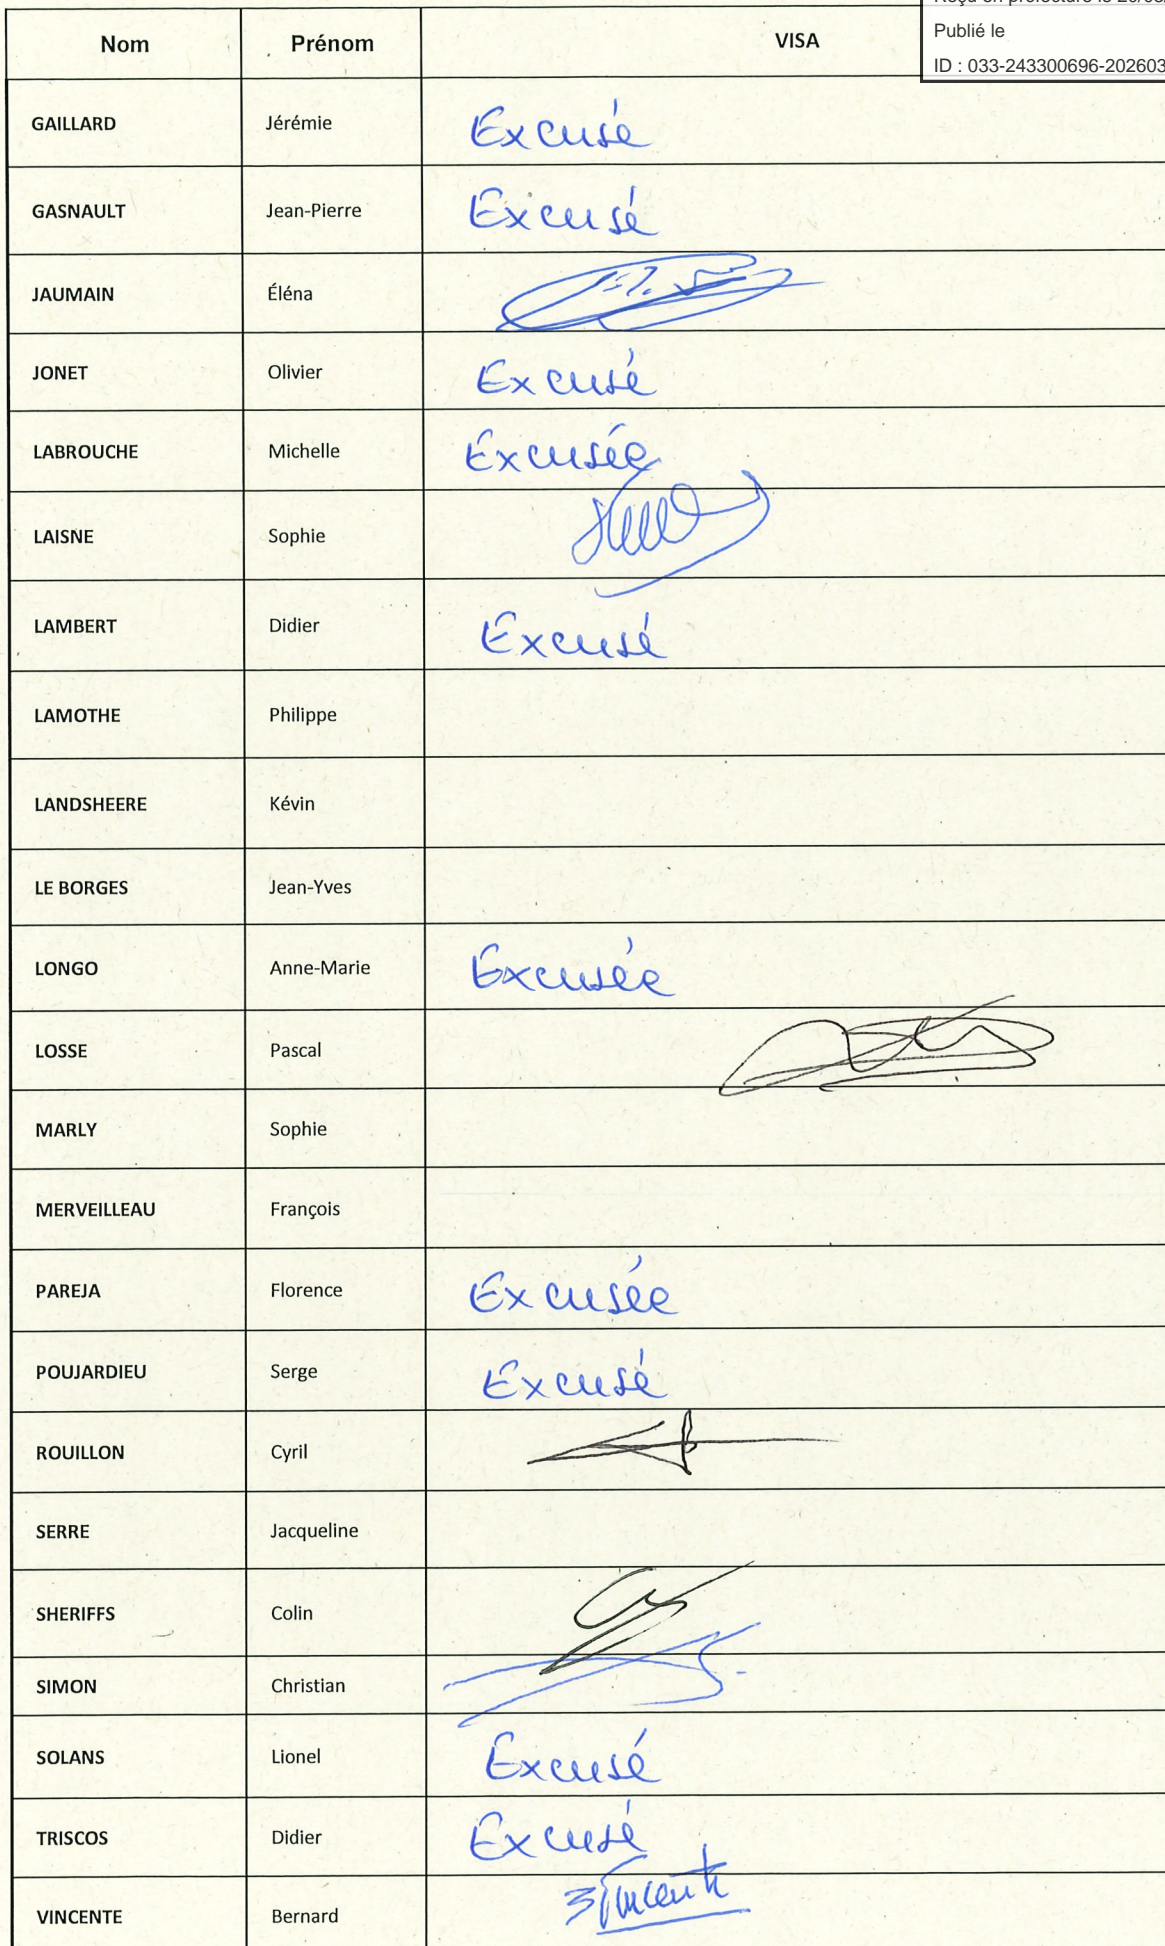 Publié le
ID : 033-243300696-202603
Nom Prénom VISA
GAILLARD Jérémie Excusé
GASNAULT Jean-Pierre Excusé
JAUMAIN Éléna
JONET Olivier Excusé
LABROUCHE Michelle Excusée
LAISNE Sophie
LAMBERT Didier Excusé
LAMOTHE Philippe
LANDSHEERE Kévin
LE BORGES Jean-Yves
LONGO Anne-Marie Excusée
LOSSE Pascal
MARLY Sophie
MERVEILLEAU François
PAREJA Florence Excusée
POUJARDIEU Serge Excusé
ROUILLON Cyril
SERRE Jacqueline
SHERIFFS Colin
SIMON Christian
SOLANS Lionel Excusé
TRISCOS Didier Excusé
VINCENTE Bernard